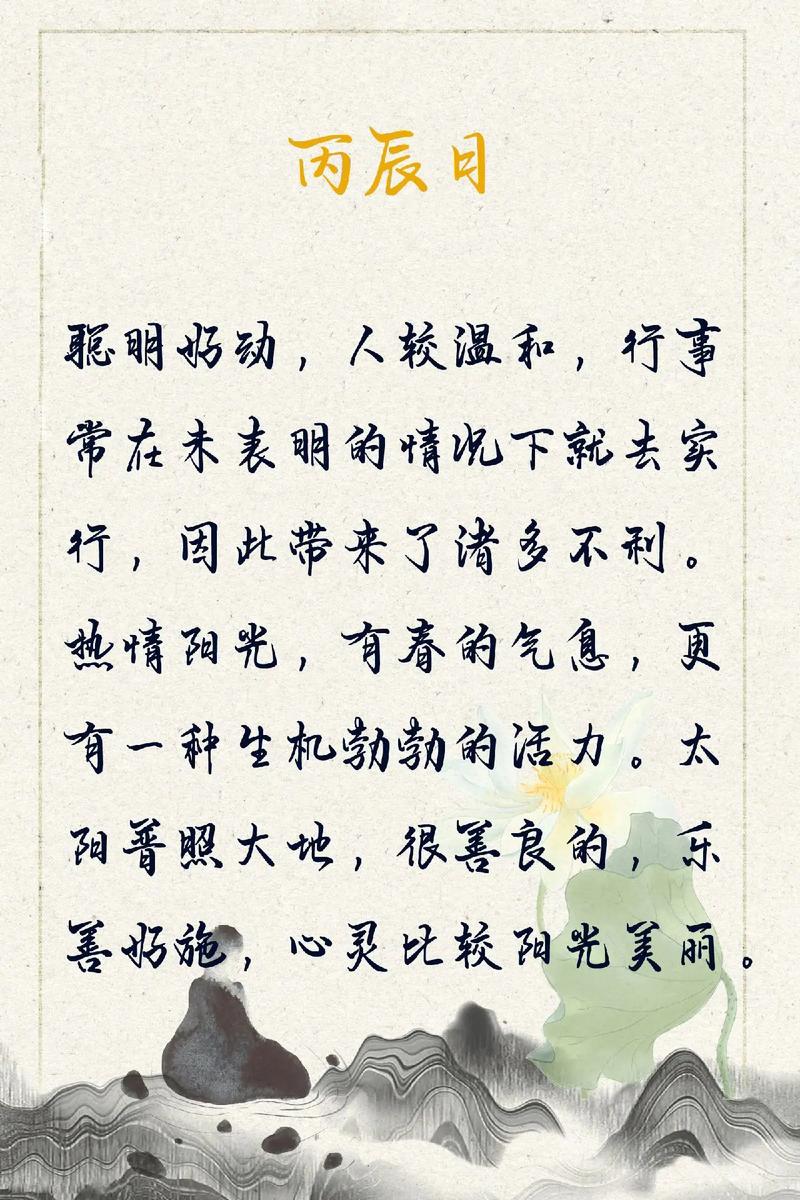 丙辰日
聪明好动，人较温和，行事
常在未表明的情况下就去实
行，因此带来了诸多不利。
热情阳光，有春的气息，更
有一种生机勃勃的活力。太
阳普照大地，很善良的，乐
善好施，心灵比较阳光美丽。